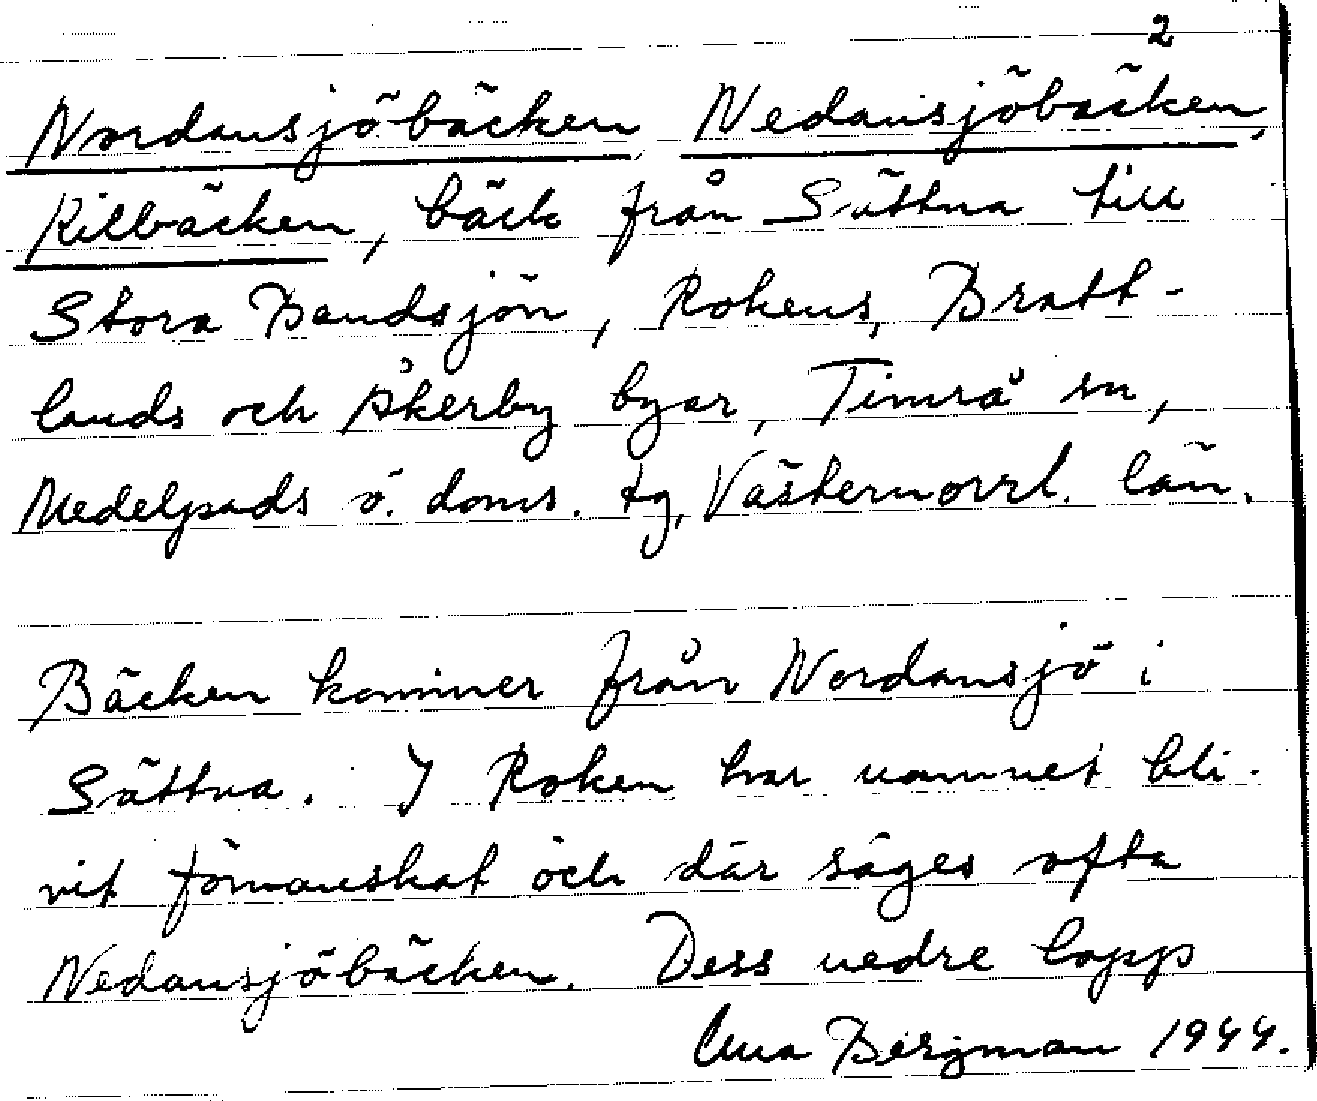 2
Nordansjöbäcken, Nedansjöbäcken,
Kilbäcken, bäck från Sättna till
Stora Bandsjön, Rokens, Bratt-
lands och Åkerby byar, Timrå sn,
Medelpads ö. doms. tg, Västernorrl. län.
Bäcken kommer från Nordansjö i
Sättna. I Roken har namnet bli-
vit förvanskat och där säges ofta
Nedansjöbäcken. Dess nedre lopp
Bergman 1944.